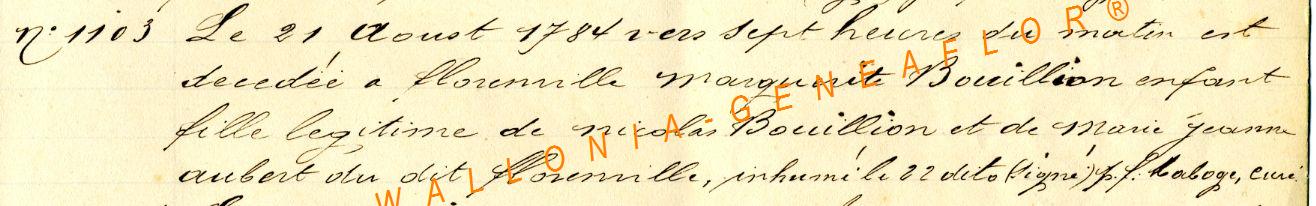 n° 1103 Le 21 Aoust 1784 vers sept heures du matin est
decedée a florenville marguerite Bouillion enfant
fille legitime de nicolas Bouillion et de Marie jeanne
aubert du dit florenville, inhumé le 22 dito (signé) p. f. Maboge, curé.
WALLONIA-GENEAFLOR®